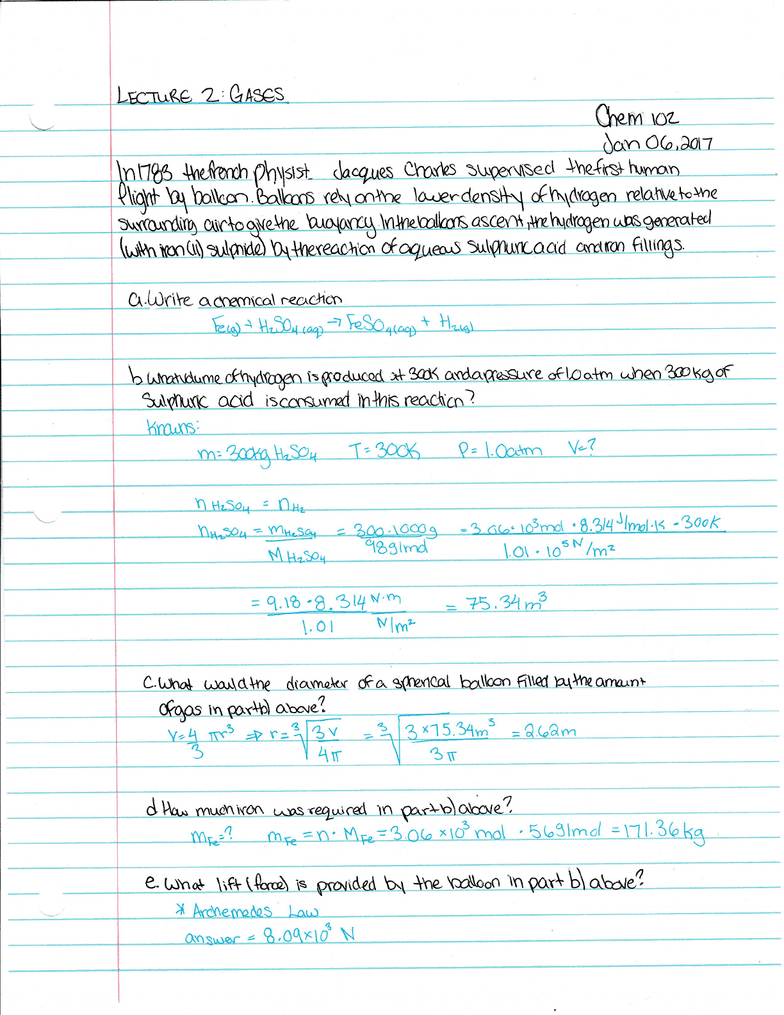 LECTURE 2: GASES
Chem 102
Jan 06, 2017
In 1783 the french physist Jacques Charles supervised the first human
flight by balloon. Balloons rely on the lower density of hydrogen relative to the
surrounding air to give the buoyancy. In the balloons ascent, the hydrogen was generated
(with iron(ii) sulphide) by the reaction of aqueous sulphuric acid and iron fillings.
a. Write a chemical reaction
Fe(s) + H₂SO₄(aq) → FeSO₄(aq) + H₂(g)
b. What volume of hydrogen is produced at 300K and a pressure of 1.0 atm when 300 kg of
sulphuric acid is consumed in this reaction?
Knowns:
m = 300kg H₂SO₄ T = 300K P = 1.0atm V = ?
n H₂SO₄ = n H₂
n H₂SO₄ = m H₂SO₄ / M H₂SO₄ = 300·1000g / 98g/mol = 3.06·10³mol · 8.314 J/mol·K · 300K / 1.01·10⁵ N/m²
= 9.18·8.314 N·m / 1.01 N/m² = 75.34m³
c. What would the diameter of a spherical balloon filled by the amount
of gas in part b) above?
V = 4/3 πr³ ⇒ r = ³√(3V / 4π) = ³√(3 × 75.34m³ / 3π) = 2.62m
d How much iron was required in part b) above?
mFe = ? mFe = n · MFe = 3.06 × 10³ mol · 56g/mol = 171.36 kg
e. What lift (force) is provided by the balloon in part b) above?
* Archemedes Law
answer = 8.09×10³ N